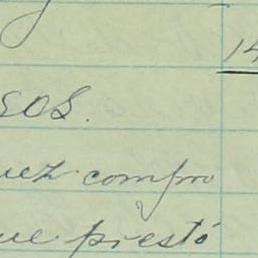 14
sos.
uez compro
que prestó